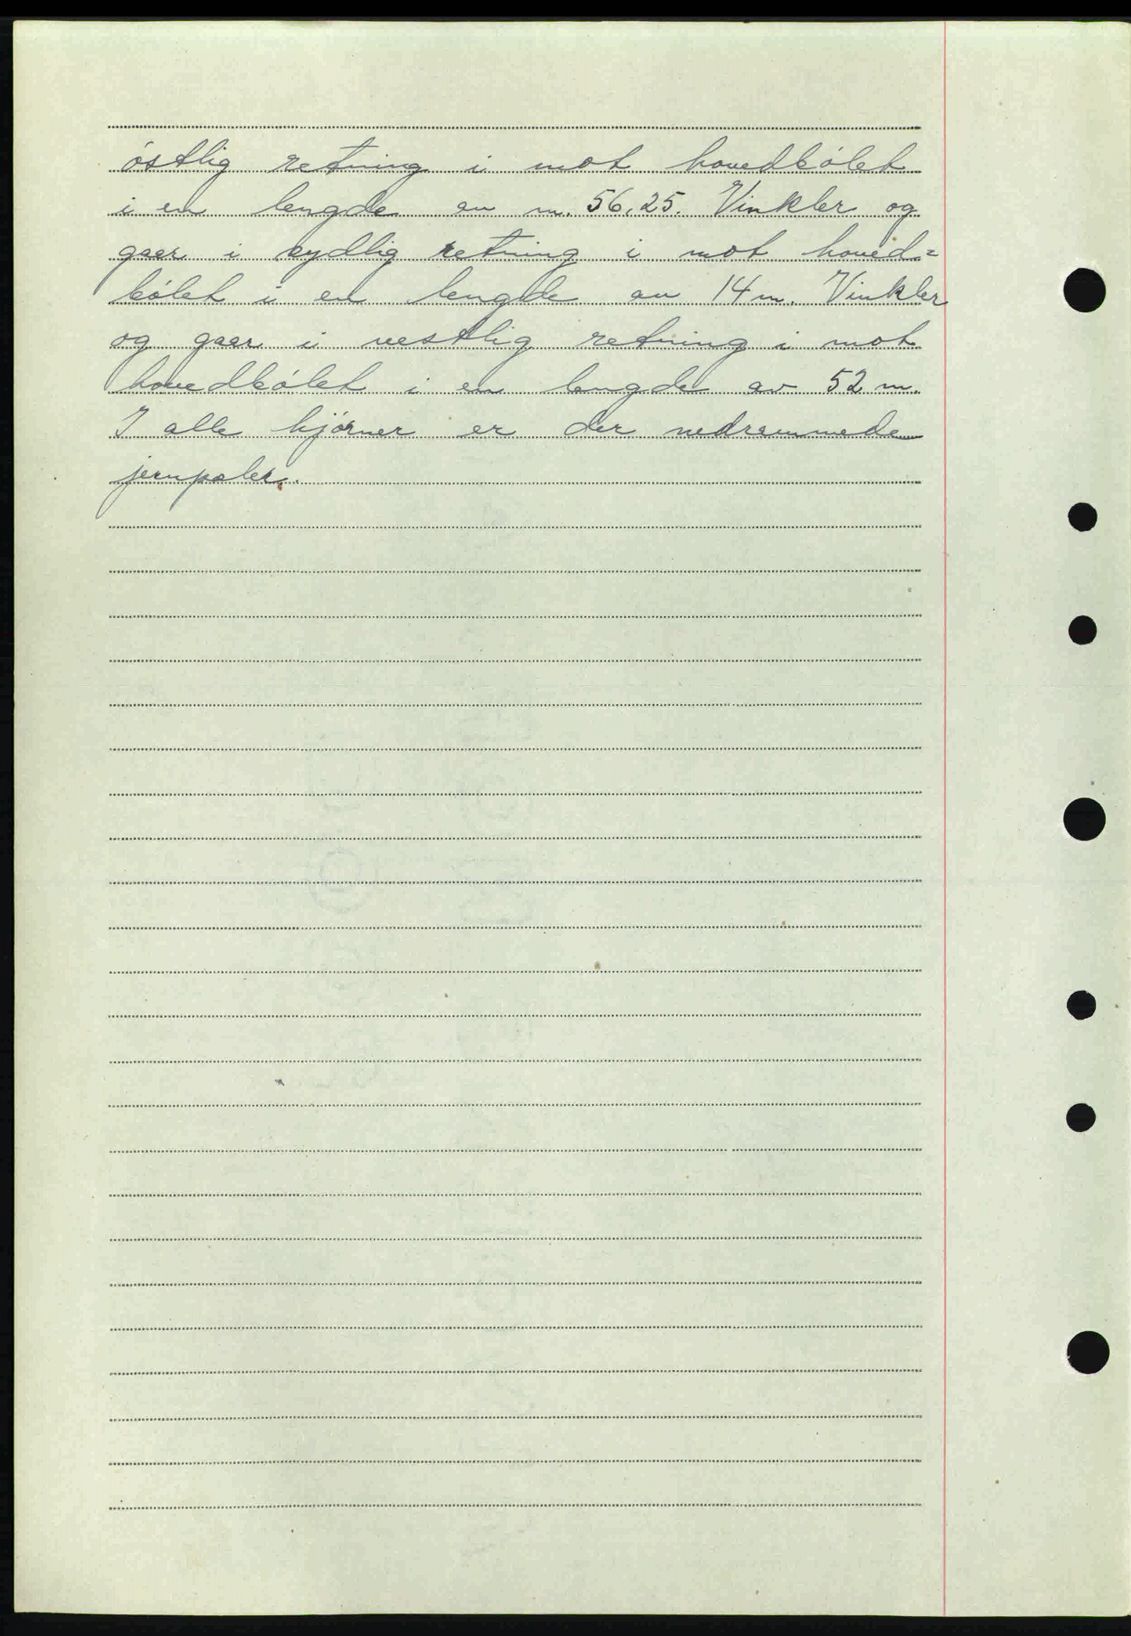 östlig retning i mot hovedbólet
i en lengde av m. 56,25. Vinkler og
gaar i sydlig retning i mot hoved=
bólet i en lengde av 14 m. Vinkler
og gaar i vestlig retning i mot
hovedbólet i en lengde av 52 m.
I alle hjórner er der nedrammede
jernpæler.